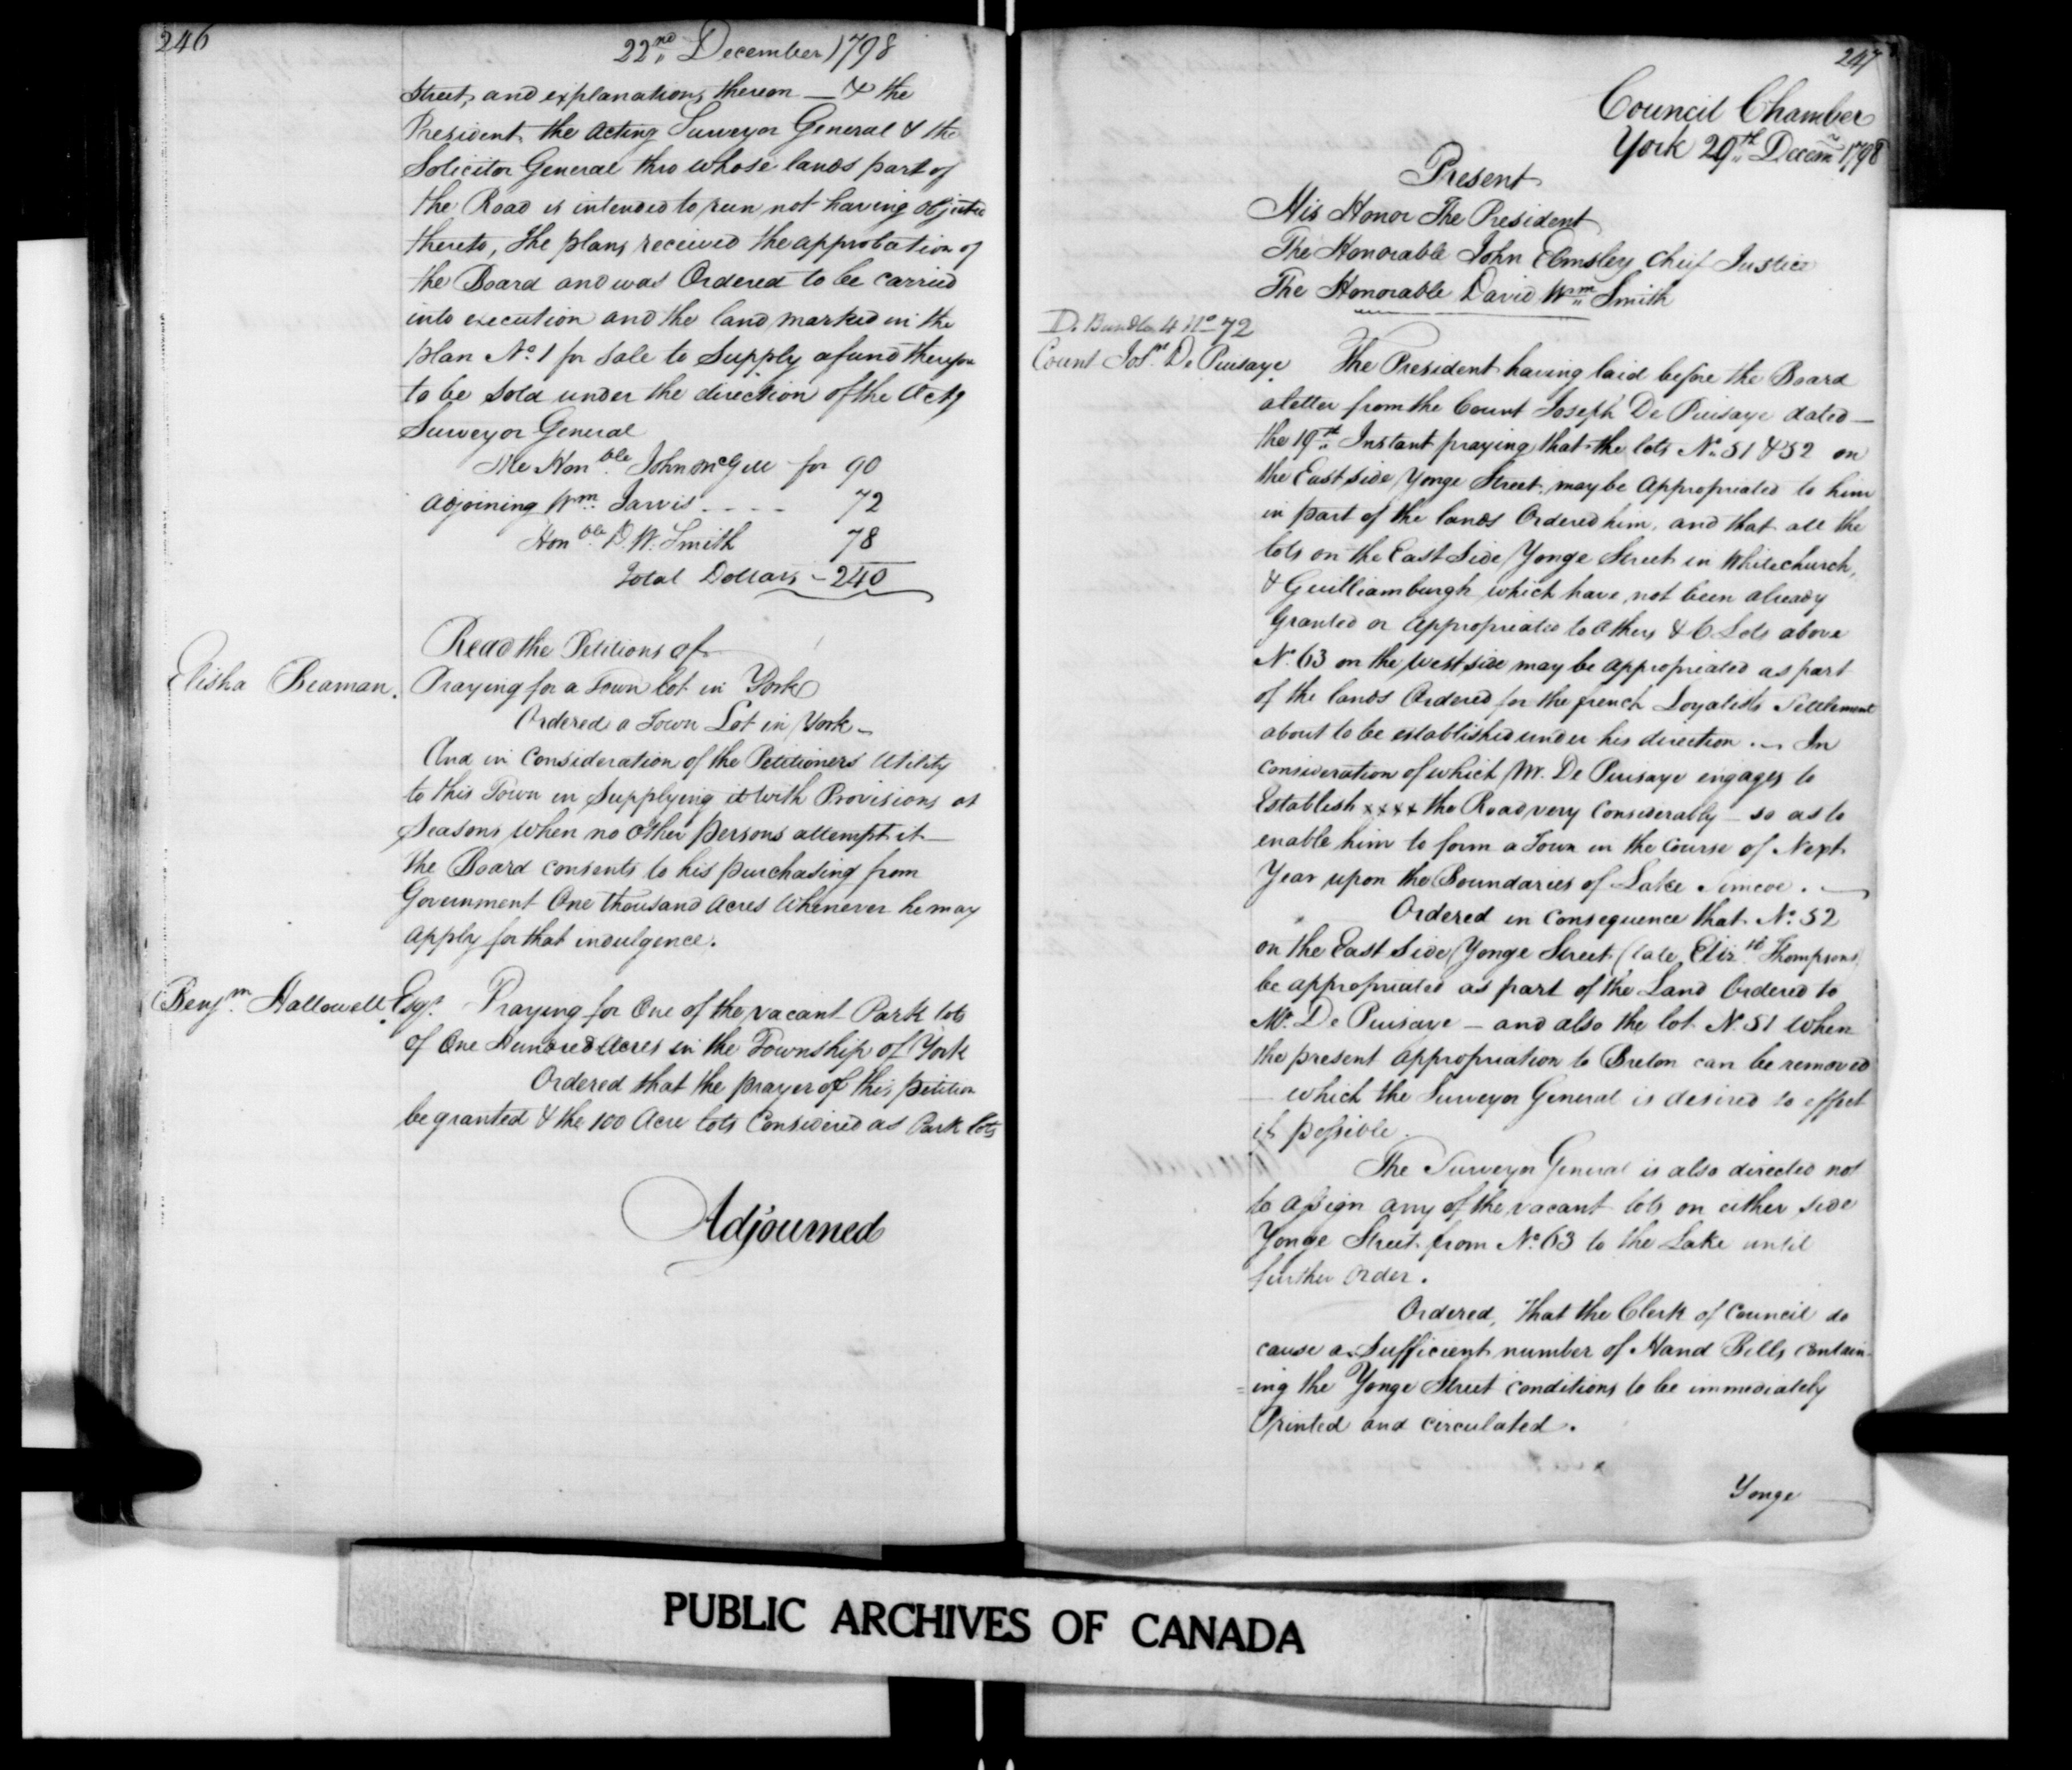 246
22nd December 1798
Street, and explanations thereon — & the
President the Acting Surveyor General & the
Solicitor General thro whose lands part of
the Road is intended to run not having objected
thereto, the plans received the approbation of
the Board and was Ordered to be carried
into execution and the land marked in the
plan No. 1 for Sale to Supply a fund therefor
to be Sold under the direction of the Actg
Surveyor General
The Honble. John McGill for 90
Adjoining Wm. Jarvis - - - - 72
Honble. D. W. Smith 78
Total Dollars - 240
Read the Petitions of
Elisha Beaman. Praying for a Town lot in York
Ordered a Town Lot in York -
And in Consideration of the Petitioners Utility
to this Town in Supplying it with Provisions at
Seasons when no other persons attempt it —
the Board consents to his purchasing from
Government One thousand Acres Whenever he may
apply for that indulgence.
Benjm. Hallowell Esqr. Praying for One of the vacant Park lots
of One Hundred Acres in the Township of York
Ordered that the prayer of this petition
be granted & the 100 Acre lots Considered as Park lots
Adjourned
247
Council Chamber
York 29th Decemr 1798
Present
His Honor The President
The Honorable John Elmsley Cheif Justice
The Honorable David Wm. Smith
D. Bundle 4 No 72
Count Josh. De Puisaye The President having laid before the Board
a letter from the Count Joseph De Puisaye dated —
the 19th Instant praying that the lots No. 51 & 52 on
the East side Yonge Street, may be Appropriated to him
in part of the lands Ordered him, and that all the
lots on the East Side Yonge Street in Whitechurch,
& Guilliamburgh which have not been already
Granted or Appropriated to Others & 6 Lots above
No. 63 on the West side may be appropriated as part
of the lands Ordered for the french Loyalists Settlement
about to be established under his direction. — In
Consideration of which Mr. De Puisaye engages to
Establish xxxx the Road very Considerably — so as to
enable him to form a Town in the Course of Next
Year upon the Boundaries of Lake Simcoe. —
Ordered in Consequence that No. 52
on the East Side Yonge Street (late Elizth Thompsons)
be appropriated as part of the Land Ordered to
Mr. De Puisaye — and also the lot No. 51 When
the present Appropriation to Breton can be removed
— which the Surveyor General is desired to effect
if possible.
The Surveyor General is also directed not
to assign any of the vacant lots on either side
Yonge Street from No. 63 to the Lake until
further Order.
Ordered, that the Clerk of Council do
cause a Sufficient number of Hand Bills contain-
=ing the Yonge Street conditions to be immediately
Printed and circulated.
Yonge
PUBLIC ARCHIVES OF CANADA